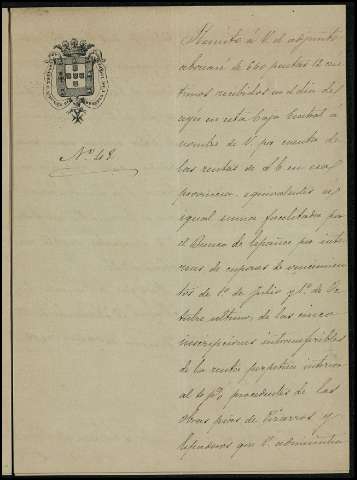 Nº 49.
Remito á V. el adjunto
abonaré de 640 pesetas 12 cén
timos recibidos en el día de
ayer en esta Caja Central á
nombre de V. por cuenta de
las rentas de S. E. en esa
provincia, equivalentes á
igual suma facilitada por
el Banco de España por inte
reses de cupones de vencimien
tos de 1º de Julio y 1º de Oc
tubre último, de las cinco
inscripciones intransferibles
de la renta perpetua interior
al 4 p%, procedentes de las
obras pías de Pizarros y
que V. administra